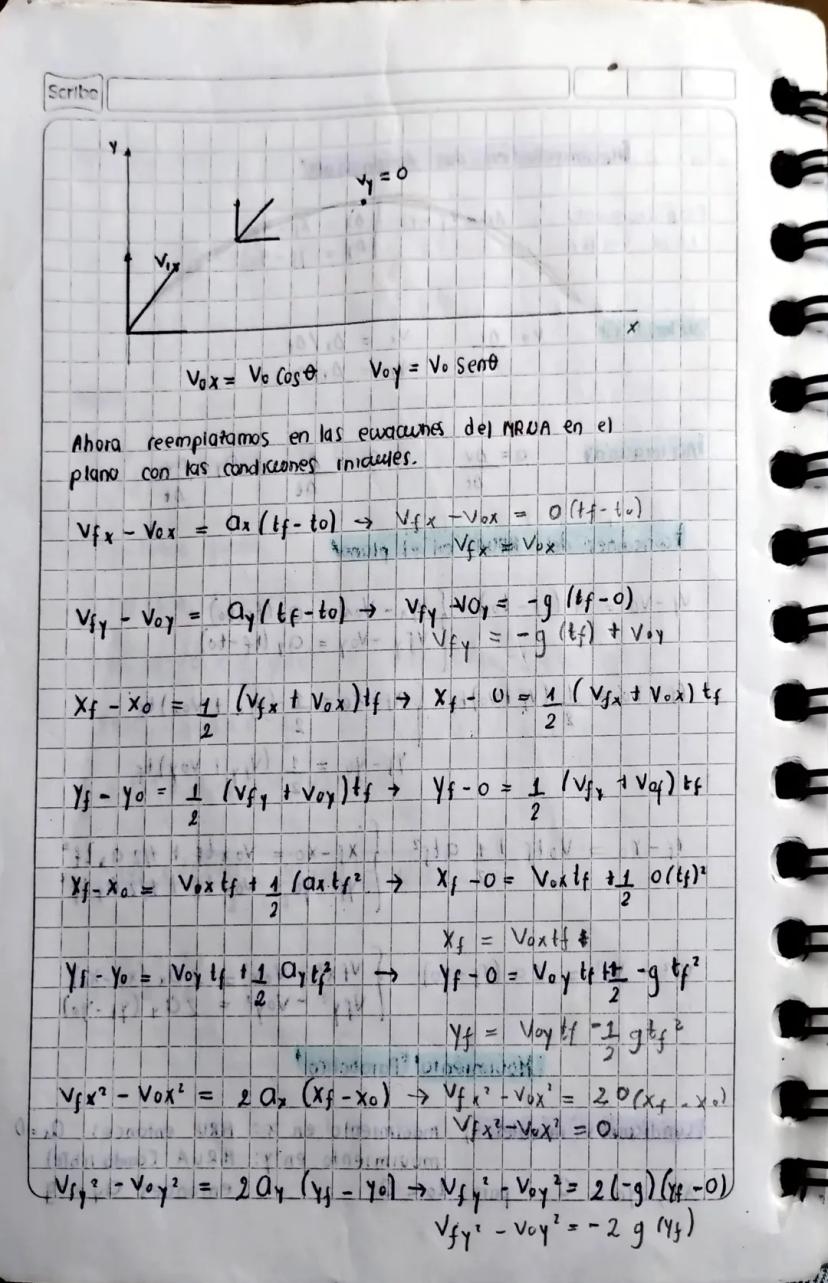 Scribe
Y
Vy = 0
V₁x
x
Vox = Vo Cosθ Voy = Vo Senθ
Ahora reemplatamos en las ecuaciones del MRUA en el
plano con las condiciones iniciales.
Vfx - Vox = ax (tf - to) → Vfx - Vox = 0 (tf - to)
Vfx = Vox
Vfy - Voy = ay (tf - to) → Vfy - Voy = -g (tf - 0)
Vfy = -g (tf) + Voy
Xf - Xo = 1/2 (Vfx + Vox) tf → Xf - 0 = 1/2 (Vfx + Vox) tf
Yf - Yo = 1/2 (Vfy + Voy) tf → Yf - 0 = 1/2 (Vfy + Voy) tf
Xf - Xo = Vox tf + 1/2 (ax tf² → Xf - 0 = Vox tf + 1/2 0(tf)²
Xf = Vox tf
Yf - Yo = Voy tf + 1/2 ay tf² → Yf - 0 = Voy tf + 1/2 -g tf²
Yf = Voy tf - 1/2 g tf²
Vfx² - Vox² = 2 ax (Xf - Xo) → Vfx² - Vox² = 2 0 (Xf - Xo)
Vfx² - Vox² = 0.
Vfy² - Voy² = 2 ay (Yf - Yo) → Vfy² - Voy² = 2 (-g) (Yf - 0)
Vfy² - Voy² = -2 g (Yf)